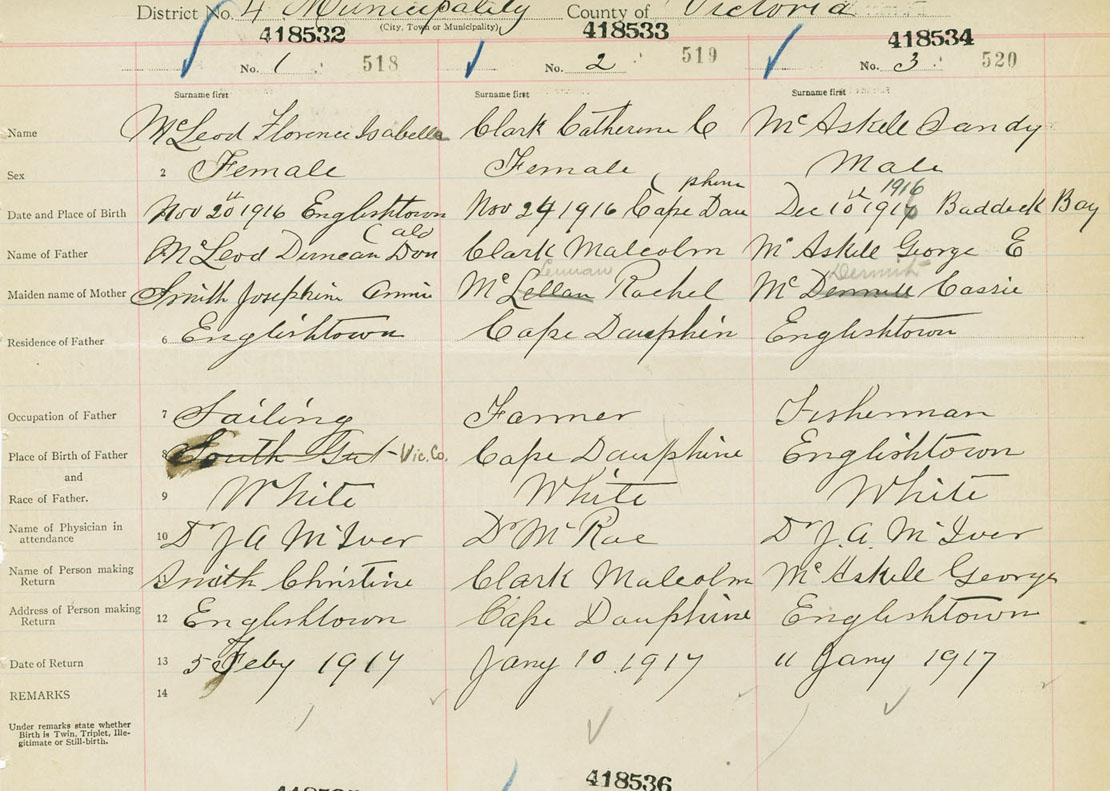 District No. 4 Municipality County of Victoria
(City, Town or Municipality)
418532 418533 418534
No. 1 518 No. 2 519 No. 3 520
Surname first Surname first Surname first
Name McLeod Florence Isabella Clark Catherine C McAskill Sandy
Sex 2 Female Female Male
phine 1916
Date and Place of Birth Nov 20th 1916 Englishtown Nov 24 1916 Cape Dau Dec 10th 1916 Baddeck Bay
ald
Name of Father McLeod Duncan Don Clark Malcolm McAskill George E
Lennan Dermid
Maiden name of Mother Smith Josephine Annie McLellan Rachel McDermid Cassie
Residence of Father 6 Englishtown Cape Dauphin Englishtown
Occupation of Father 7 Sailing Farmer Fisherman
Place of Birth of Father 8 South Gut Vic. Co. Cape Dauphine Englishtown
and
Race of Father. 9 White White White
Name of Physician in attendance 10 Dr J A McIver Dr McRae Dr J. A. McIver
Name of Person making Return Smith Christine Clark Malcolm McAskill George
Address of Person making Return 12 Englishtown Cape Dauphine Englishtown
Date of Return 13 5 Feby 1917 Jany 10 1917 11 Jany 1917
REMARKS 14
Under remarks state whether
Birth is Twin, Triplet, Ille-
gitimate or Still-birth.
418536